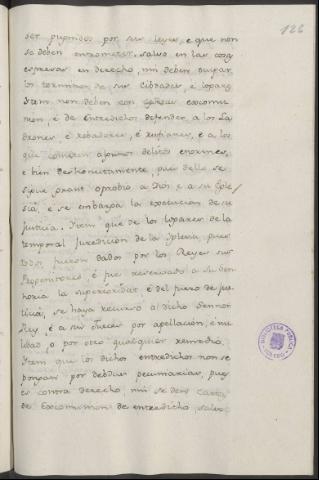 126
ser punidos por sus leyes, e que non
se deben entrometer, salvo en las cosas
espresas en derecho, nin deben ocupar
los terminos de sus Cibdades, é logares
Item, non deben con cartas excomu
nion é de Entredichos defender a los La
drones é robadores, é rufianes, é a los
que cometen algunos delitos enormes,
e bien deshonestamente, pues dello se
sigue grant oprobio a Dios e a su Igle
sia, é se embarga la execucion de su
justicia. Item que de los logares de la
temporal juredicion de la Iglesia, pues
fueron dados por los Reyes sus
Progenitores, é fue reservado a su Señ
horia la superioridat é del fuero de jus
ticia, se haya recurso al dicho Sennor
Rey, é a sus Jueces por apellacion, é nu
lidad, o por otro qualquier remedio.
Item que los dichos entredichos non se
pongan por debdas pecuniarias, pues
es contra derecho, nin se den Cartas
de Excomunion de entredicho salvo
BIBLIOTECA PUBLICA
TOLEDO